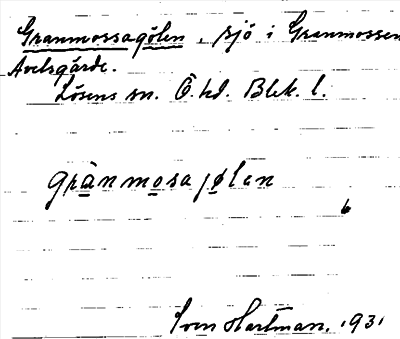 Granmossagölen, sjö i Granmossen
Avelsgärde.
Lösens sn. Ö. hd. Blek. l.
grànmosajølan
Sven Hartman, 1931